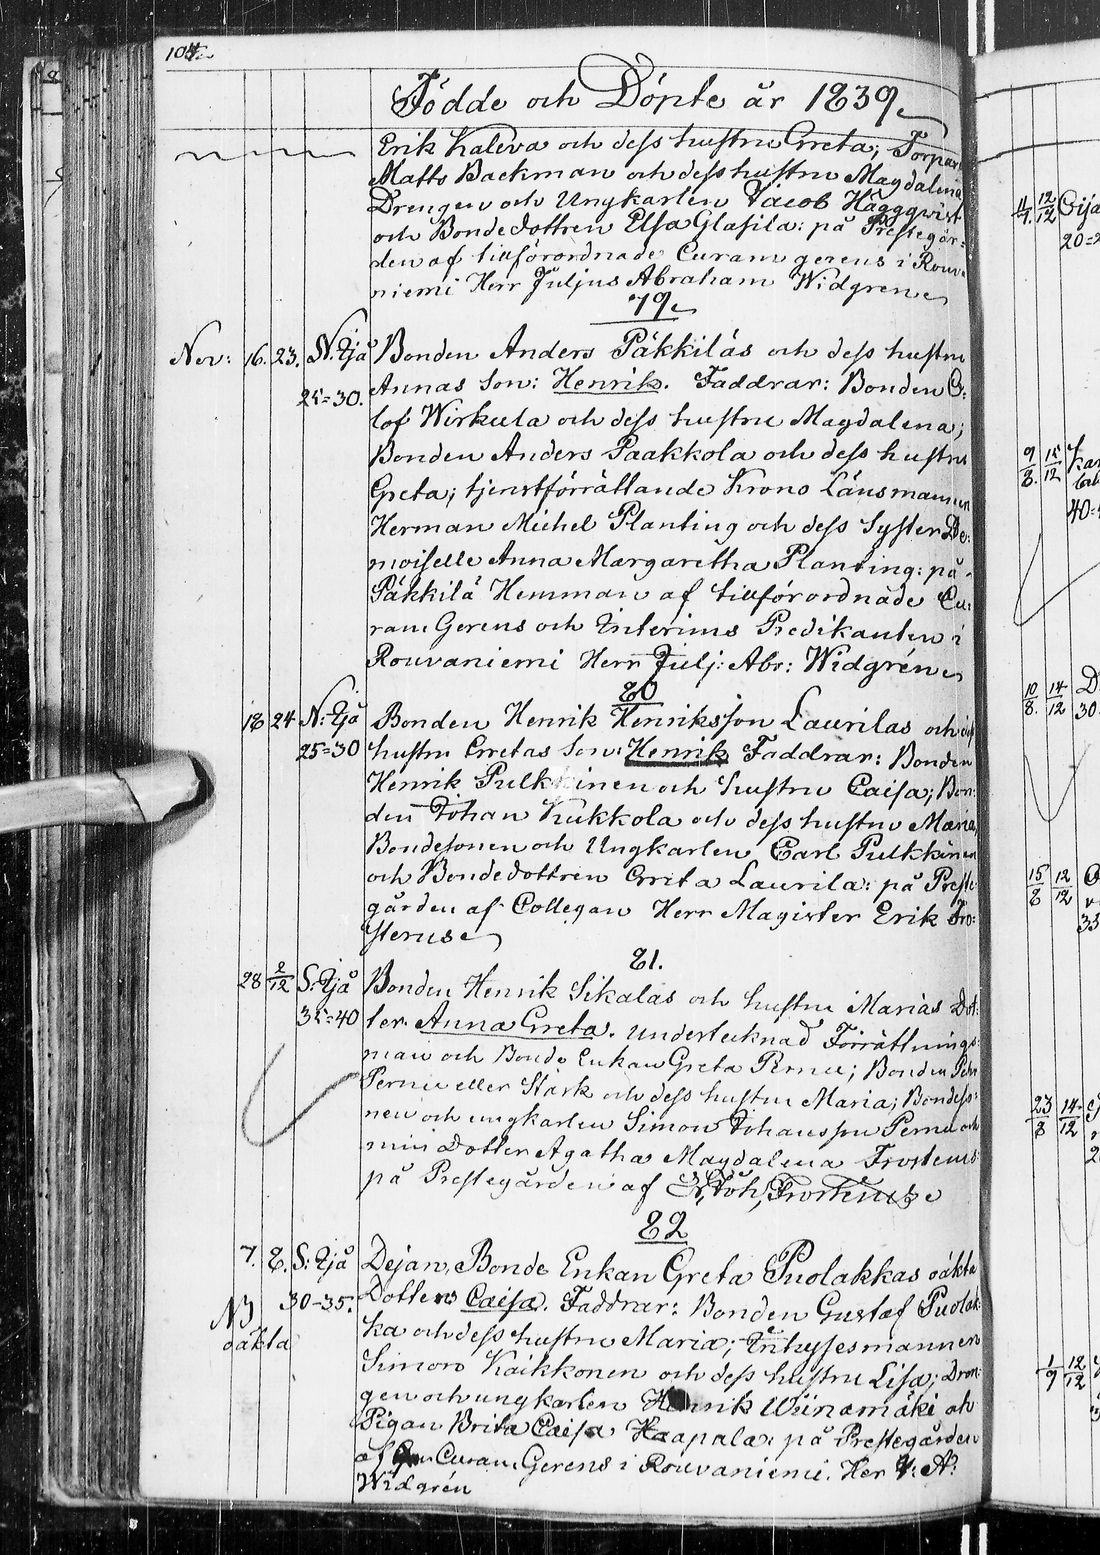 104.
Födde och Döpte år 1839.
Erik Kaleva och dess hustru Greta; Torpar
Matts Backman och dess hustru Magdalena
Drengen och Ungkarlen Jacob Häggqvist
och Bondedottren Elsa Glasila: på Prestegår=
den af tillförordnade Curam gerens i Rova
niemi Herr Juljus Abraham Widgren
79.
Nov: 16. 23. N. Sjä Bonden Anders Päkkiläs och dess hustru
25=30. Annas Son: Henrik. Faddrar: Bonden O:
lof Wirkula och dess hustru Magdalena;
Bonden Anders Paakkola och dess hustru
Greta; tjenstförrättande Krono Länsmannen
Herman Michel Planting och dess Syster De:
moiselle Anna Margaretha Planting: på
Päkkilä Hemman af tillförordnade Cu:
ram Gerens och Interims Predikanten i
Rouvaniemi Herr Julj: Abr: Widgrén
80
18 24 N: Sjä Bonden Henrik Henriksson Laurilas och dess
25=30 hustru Gretas Son: Henrik Faddrar: Bonden
Henrik Pulkkinen och hustru Caisa; Bon:
den Johan Kukkola och dess hustru Maria,
Bondesonen och Ungkarlen Carl Pulkkinen
och Bondedottren Greta Laurila: på Preste
gården af Collegan Herr Magister Erik Fro:
sterus
81.
28 2/12 S: Sjä Bonden Henrik Sikalas och hustru Marias Dot:
35=40 ter Anna Greta. undertecknad Förrättnings:
man och Bonde Enkan Greta Pernu; Bonden Petr
Pernu eller Stark och dess hustru Maria; Bondeso:
nen och ungkarlen Simon Johansson Pernu och
min Dotter Agatha Magdalena Frosterus:
på Prestegården af Joh, Frosterus
82
7. 8. S: Sjä Dejan, Bonde Enkan Greta Puolakkas oäkta
30-35. Dotter Caisa. Faddrar: Bonden Gustaf Puolak:
NB ka och dess hustru Maria; Inhysesmannen
oäkta Simon Kaikkonen och dess hustru Lisa; Dren
gen och ungkarlen Henrik Wiinamäki och
Pigan Brita Caisa Haapala: på Prestegården
af Curam Gerens i Rouvaniemi. Her J: A:
Widgrén
11/7. 12/12
20=2
9/8. 15/12
40=
10/8. 14/12 D
30.
15/8 12/12
23/8 14/12
1/9 12/12